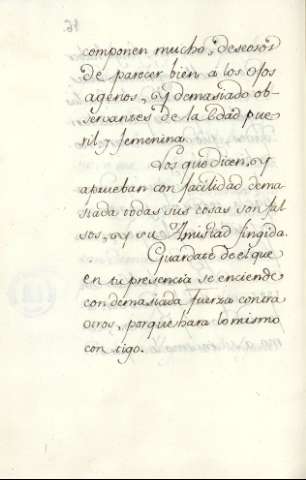 componen mucho, deseosos
de parecer bien á los ojos
agenos, y demasiado ob-
servantes de la Edad pue-
ril y femenina.
Los que dicen, y
aprueban con facilidad dema-
siada todas sus cosas son fal-
sos, y su Amistad fingida.
Guardate de el que
en tu presencia se enciende
con demasiada fuerza contra
otros, porque hara lo mismo
con tigo.